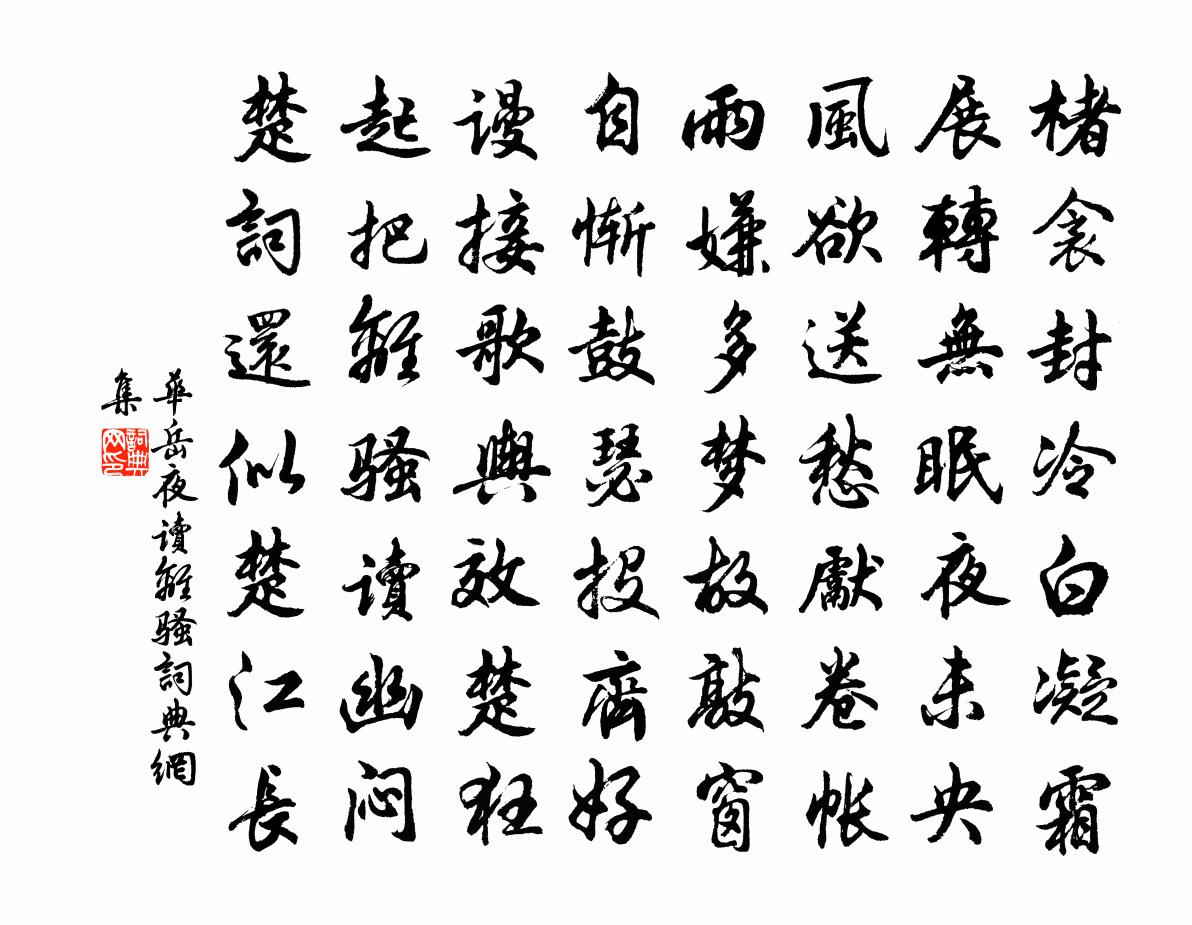 楮衾封冷白凝霜
展轉無眠夜未央
風欲送愁獻卷帳
雨嫌多梦故敲窗
自慚鼓瑟投齊好
謾接歌輿效楚狂
起把離骚讀幽闷
楚詞還似楚江長
華岳夜讀離骚詞典網
集
詞典网印